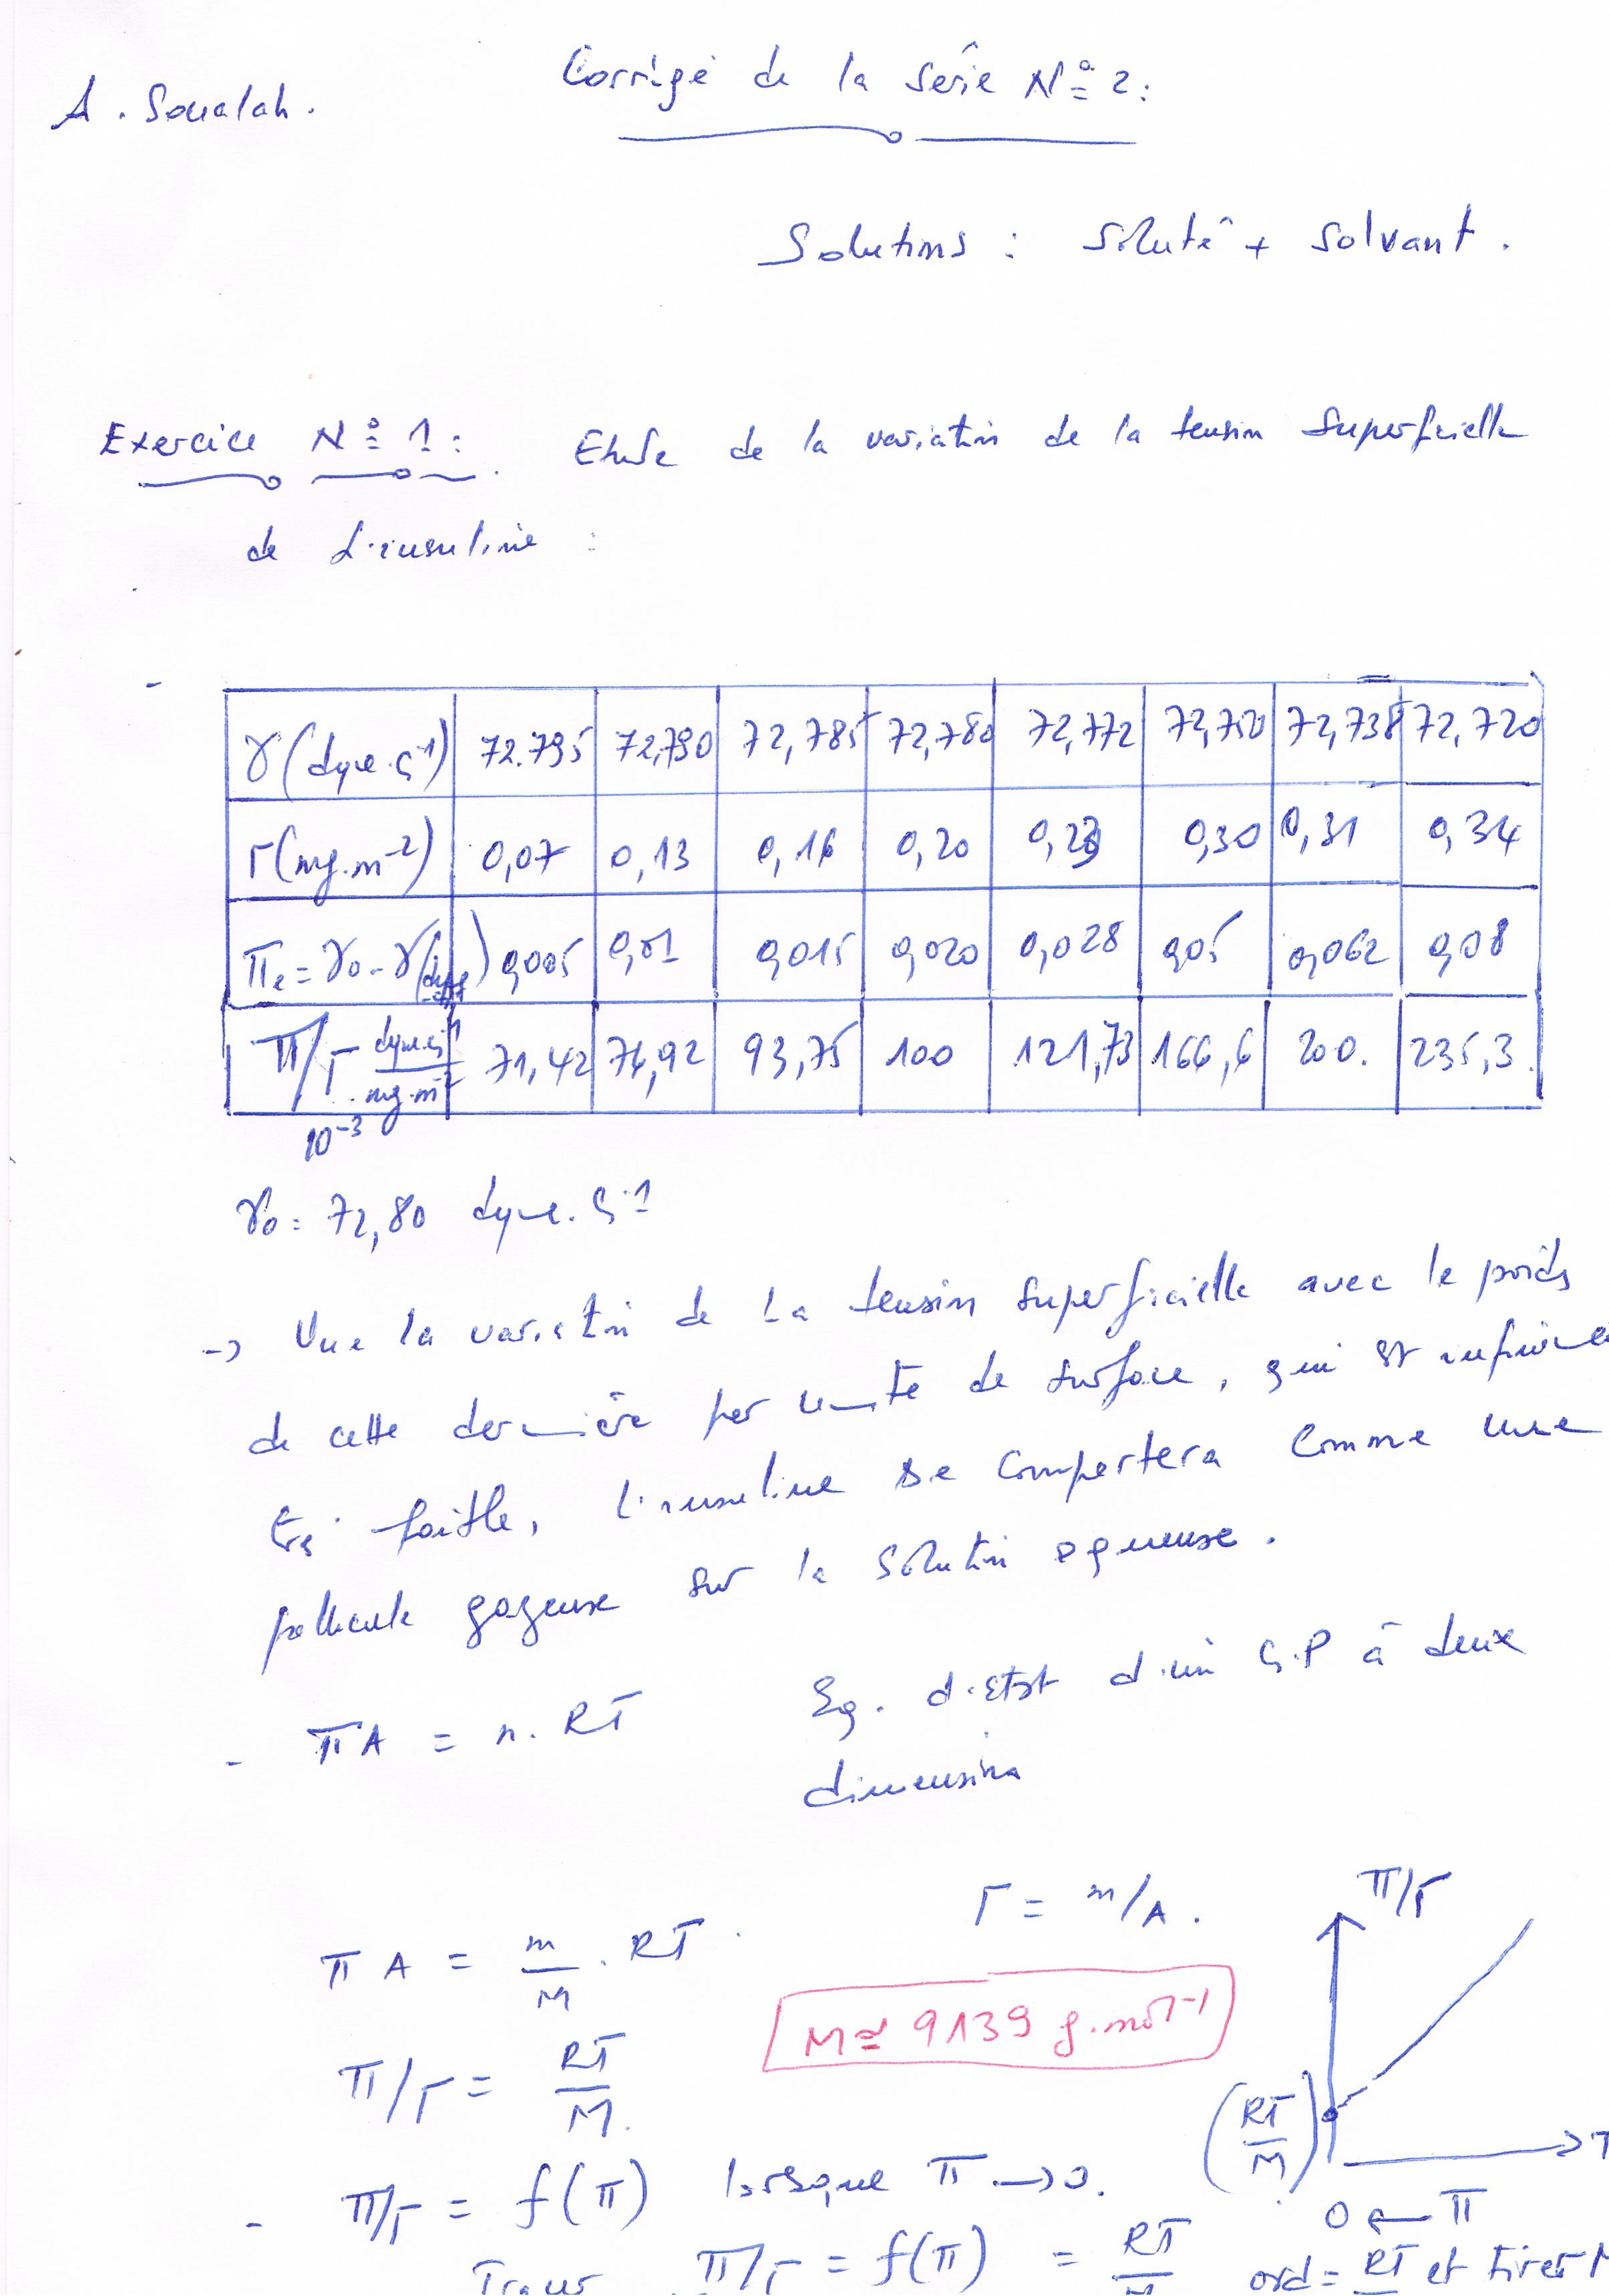 A. Soualah.
Corrigé de la série N° 2:
Solutions : Soluté + Solvant.
Exercice N° 1: Etude de la variation de la tension superficielle
de l'insuline :
γ(dyne.cm⁻¹) 72.795 72,790 72,785 72,780 72,772 72,750 72,738 72,720
Γ(mg.m⁻²) 0,07 0,13 0,16 0,20 0,23 0,30 0,31 0,34
πe = γ0 - γ (dyne.cm⁻¹) 0,005 0,01 0,015 0,020 0,028 0,05 0,062 0,08
π/Γ dyne.cm⁻¹/mg.m⁻² 10⁻³ 71,42 76,92 93,75 100 121,73 166,6 200. 235,3
γ0 = 72,80 dyne.cm⁻¹
-> Vue la variation de la tension superficielle avec le poids
de cette dernière par unité de surface, qui est
très faible, l'insuline se comportera comme une
pellicule gazeuse sur la solution aqueuse.
- πA = n. RT Eq. d'état d'un G.P à deux
dimensions
Γ = m/A.
π/Γ
πA = m/M . RT.
M ≃ 9139 g.mol⁻¹
π/Γ = RT/M.
(RT/M)
- π/Γ = f(π) lorsque π → 0.
0 ← π
Tracer π/Γ = f(π) = RT/M ord = RT et tirer M